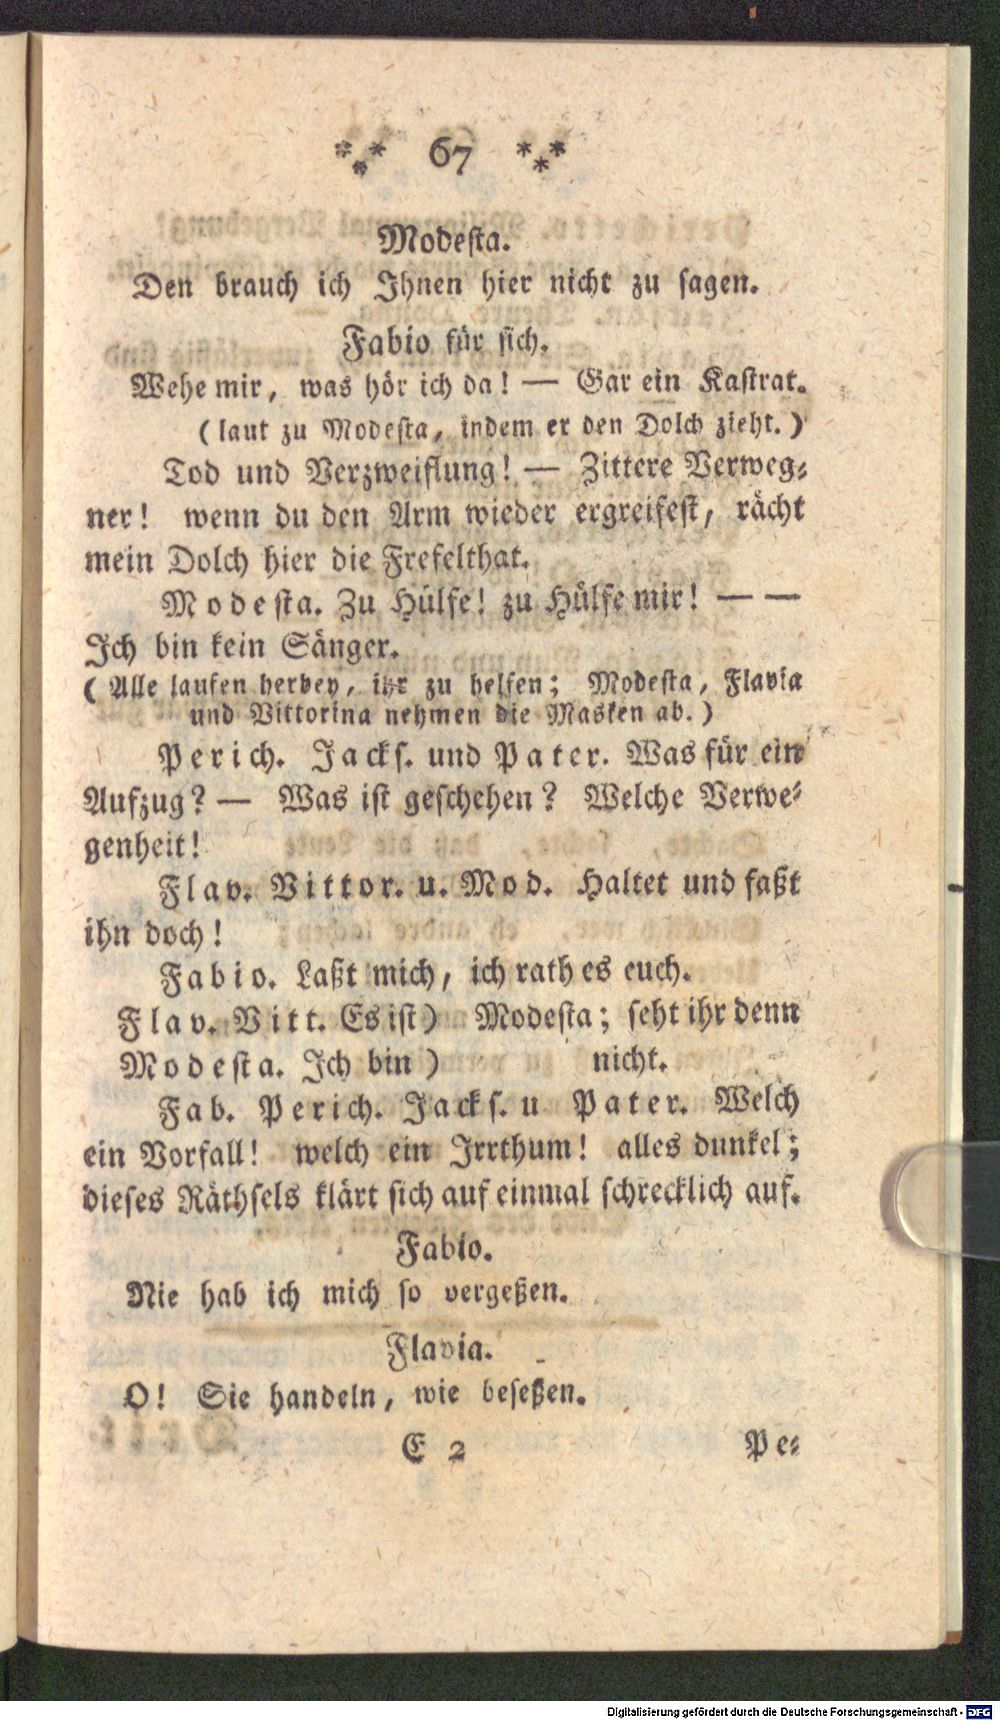 *** 67 ***
Modesta.
Den brauch ich Ihnen hier nicht zu sagen.
Fabio für sich.
Wehe mir, was hör ich da! — Gar ein Kastrat.
(laut zu Modesta, indem er den Dolch zieht.)
Tod und Verzweiflung! — Zittere Verweg-
ner! wenn du den Arm wieder ergreifest, rächt
mein Dolch hier die Frefelthat.
Modesta. Zu Hülfe! zu Hülfe mir! — —
Ich bin kein Sänger.
(Alle laufen herbey, ihr zu helfen; Modesta, Flavia
und Vittorina nehmen die Masken ab.)
Perich. Jacks. und Pater. Was für ein
Aufzug? — Was ist geschehen? Welche Verwe-
genheit!
Flav. Vittor. u. Mod. Haltet und faßt
ihn doch!
Fabio. Laßt mich, ich rath es euch.
Flav. Vitt. Es ist) Modesta; seht ihr denn
Modesta. Ich bin ) nicht.
Fab. Perich. Jacks. u Pater. Welch
ein Vorfall! welch ein Irrthum! alles dunkel;
dieses Räthsels klärt sich auf einmal schrecklich auf.
Fabio.
Nie hab ich mich so vergeßen.
Flavia.
O! Sie handeln, wie beseßen.
E 2 Pe-
Digitalisierung gefördert durch die Deutsche Forschungsgemeinschaft - DFG